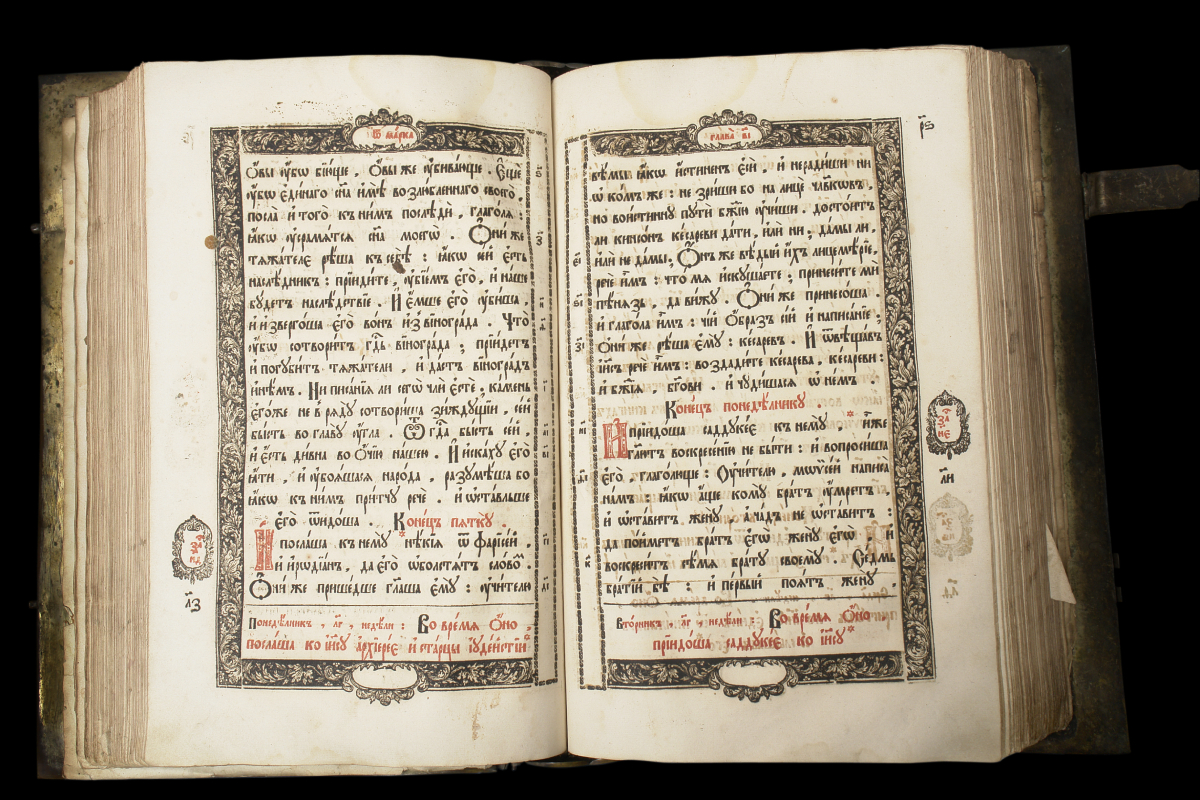 Ѿ ма́рка
Ѻ҆́вы ᲂу҆́бѡ бїю́ще, Ѻ҆́вы же ᲂу҆бива́юще. Є҆щѐ
ᲂу҆́бѡ є҆ди́наго сн҃а и҆мѣ́ѧ возлю́бленнаго своего̀,
посла̀ и҆ того̀ къ ни́мъ послѣдѝ, глаго́лѧ:
ꙗ҆́кѡ ᲂу҆срамѧ́тсѧ сн҃а моегѡ̀. Ѻ҆ни́ же
тѧжа́телє рѣ́ша къ себѣ̀: ꙗ҆́кѡ се́й є҆́сть
наслѣ́дникъ: прїиди́те, ᲂу҆бїе́мъ є҆го̀, и҆ на́ше
бꙋ́детъ наслѣ́дствїе. И҆ є҆́мше є҆го̀ ᲂу҆би́ша,
и҆ и҆зверго́ша є҆го̀ во́нъ и҆з̾ вїногра́да. Что̀
ᲂу҆́бѡ сотвори́тъ гд҇ь вїногра́да; прїи́детъ
и҆ погꙋби́тъ тѧжа́тели, и҆ да́стъ вїногра́дъ
и҆нѣ́мъ. Ни писа́нїѧ ли сегѡ̀ члѝ є҆стѐ, ка́мень
є҆го́же не в̾ рѧдꙋ̀ сотвори́ша зи́ждꙋщїи, се́й
бы́сть во главꙋ̀ ᲂу҆́гла. Ѿ гд҇а бы́сть се́й,
и҆ є҆́сть ди́вна во ѻ҆чїю̀ на́шею. И҆ и҆ска́хꙋ є҆го̀
ꙗ҆́ти, и҆ ᲂу҆боѧ́шасѧ наро́да, разꙋмѣ́ша бо
ꙗ҆́кѡ къ ни́мъ при́тчꙋ речѐ. и҆ ѡ҆ста́вльше
є҆го̀ ѿидо́ша. Коне́цъ пѧткꙋ̀.
И҆ посла́ша къ немꙋ̀ *нѣ́кїѧ ѿ фарїсе́й,
и҆ и҆рѡдїа́нъ, да є҆го̀ ѡ҆болстѧ́тъ сло́вомъ.
Ѻ҆ни́ же прише́дше глаша є҆мꙋ̀: ᲂу҆чи́телю
Понедѣ́лникъ, л҃г, недѣ́ли: Во вре́мѧ ѻ҆́но,
посла́ша ко і҆и҃сꙋ а҆рхїере́є и҆ ста́рцы і҆ꙋде́йстїи*
за
ча
н҃д
л҃з
глава̀ в҃і
р҃ѕ
вѣ́мы ꙗ҆́кѡ и҆́стиненъ є҆сѝ, и҆ неради́ши ни
ѡ ко́мъ же: не зри́ши бо на лицѐ чл҃вкѡвъ,
но вои́стиннꙋ пꙋтѝ бж҃їи ᲂу҆чи́ши. досто́итъ
ли кинсо́нъ ке́сареви да́ти, и҆лѝ ни; да́мы ли,
и҆лѝ не да́мы; Ѻ҆́нъ же вѣ́дый и҆́хъ лицемѣ́рїе,
речѐ и҆̀мъ: что́ мѧ и҆скꙋша́ете; принеси́те мѝ
пѣ́нѧзь, да ви́жꙋ. Ѻ҆ни́ же принесо́ша.
и҆ глаго́ла и҆̀мъ: чі́й ѻ҆́бразъ се́й и҆ написа́нїе;
Ѻ҆ни́ же рѣ́ша є҆мꙋ̀: ке́саревъ. И҆ ѿвѣща́въ
і҆и҃съ речѐ и҆̀мъ: воздади́те ке́сарєва, ке́сареви:
и҆ бж҃їѧ, бг҃ови. и҆ чꙋди́шасѧ ѡ҆ не́мъ.
Коне́цъ понедѣ́лникꙋ.
И҆ прїидо́ша саддꙋке́є къ немꙋ̀,* и҆̀же
гл҃ютъ воскресе́нїю не бы́ти: и҆ вопроси́ша
є҆го̀, глаго́люще: Оу҆чи́телю, мѡѷсе́й написа̀
на́мъ: ꙗ҆́кѡ а҆́ще комꙋ̀ бра́тъ ᲂу҆́мретъ,
и҆ ѡ҆ста́витъ женꙋ̀, а҆ ча́дъ не ѡ҆ста́витъ:
да по́йметъ бра́тъ є҆гѡ̀ женꙋ̀ є҆гѡ̀ и҆
воскреси́тъ сѣ́мѧ бра́тꙋ своемꙋ̀.* Се́дмь
бра́тїй бѣ̀: и҆ пе́рвый поѧ́тъ женꙋ̀,
Вто́рникъ, л҃г, недѣ́ли: Во вре́мѧ ѻ҆́но
прїидо́ша саддꙋке́є ко і҆и҃сꙋ*
за
ча
н҃е
л҃и